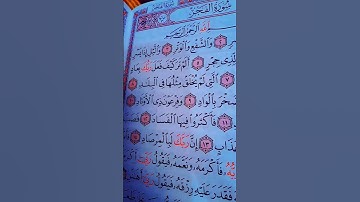 سُورَةُ الْفَجْرِ
اللَّهِ الرَّحْمَٰنِ الرَّحِيمِ
وَالشَّفْعِ وَالْوَتْرِ ٣ وَاللَّيْلِ إِذَا يَسْرِ
لِّذِي حِجْرٍ ٥ أَلَمْ تَرَ كَيْفَ فَعَلَ رَبُّكَ
٧ الَّتِي لَمْ يُخْلَقْ مِثْلُهَا فِي الْبِلَادِ ٨
الصَّخْرَ بِالْوَادِ ٩ وَفِرْعَوْنَ ذِي الْأَوْتَادِ
١١ فَأَكْثَرُوا فِيهَا الْفَسَادَ ١٢
عَذَابٍ ١٣ إِنَّ رَبَّكَ لَبِالْمِرْصَادِ
رَبُّهُ فَأَكْرَمَهُ وَنَعَّمَهُ فَيَقُولُ
فَقَدَرَ عَلَيْهِ رِزْقَهُ فَيَقُولُ